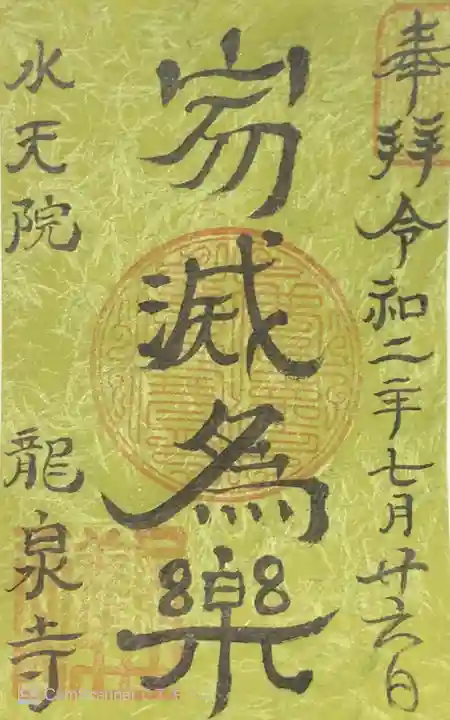 奉拜令和二年七月廿六日
寂滅為樂
水天院 龍泉寺